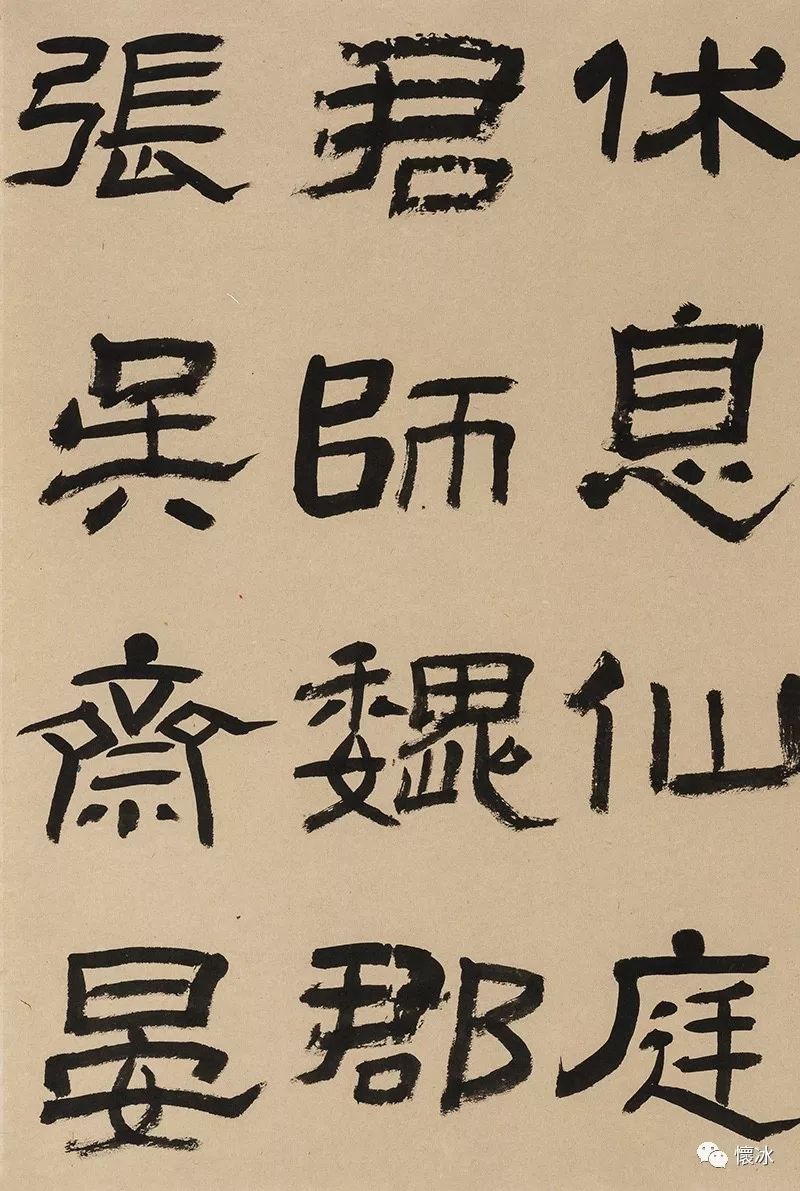 休息仙庭
君師魏郡
張吳齋晏
懷冰